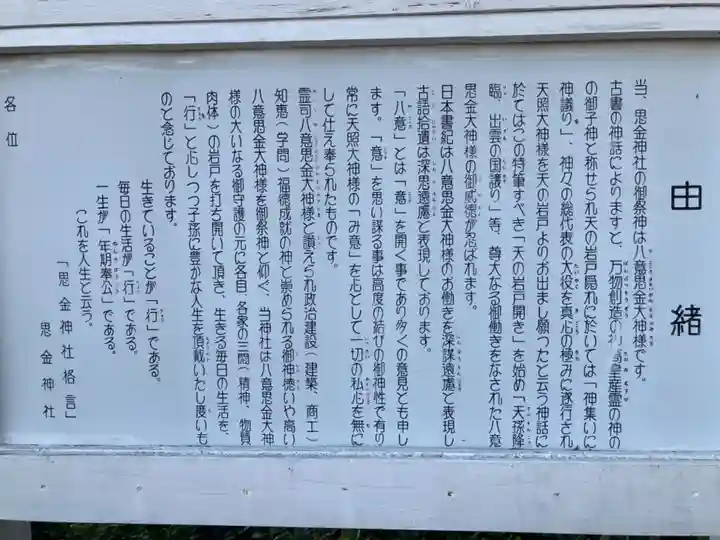 由緒
当、思金神社の御祭神は八意思金大神様です。
古書の神話によりますと、万物創造の高皇産霊の神の
の御子神と称せられ天の岩戸隠れに於いては「神集いに
神議り」、神々の総代表の大役を真心の極みに遂行され
天照大神様を天の岩戸よりお出まし願つたと云う神話に
於てはこの特筆すべき「天の岩戸開き」を始め「天孫降
臨、出雲の国譲り」等、尊大なる御働きをなされた八意
思金大神様の御威徳が忍ばれます。
日本書紀は八意思金大神様のお働きを深謀遠慮と表現し
古語拾遺は深思遠慮と表現しております。
「八意」とは「意」を開く事であり多くの意見とも申し
ます。「意」を思い謀る事は高度の結びの御神性で有り
常に天照大神様の「み意」を心として一切の私心を無に
して仕え奉られたものです。
霊司八意思金大神様と讃えられ政治建設(建築、商工)
知恵(学問)福徳成就の神と崇められる御神徳いや高い
八意思金大神様を御祭神と仰ぐ、当神社は八意思金大神
様の大いなる御守護の元に各自、各家の三問(精神、物質
肉体)の岩戸を打ち開いて頂き、生きる毎日の生活を、
「行」と心しつつ子孫に豊かな人生を頂戴いたし度いも
のと念じております。
生きていることが「行」である。
毎日の生活が「行」である。
一生が「年期奉公」である。
これを人生と云う。
「思金神社格言」
思金神社
各位